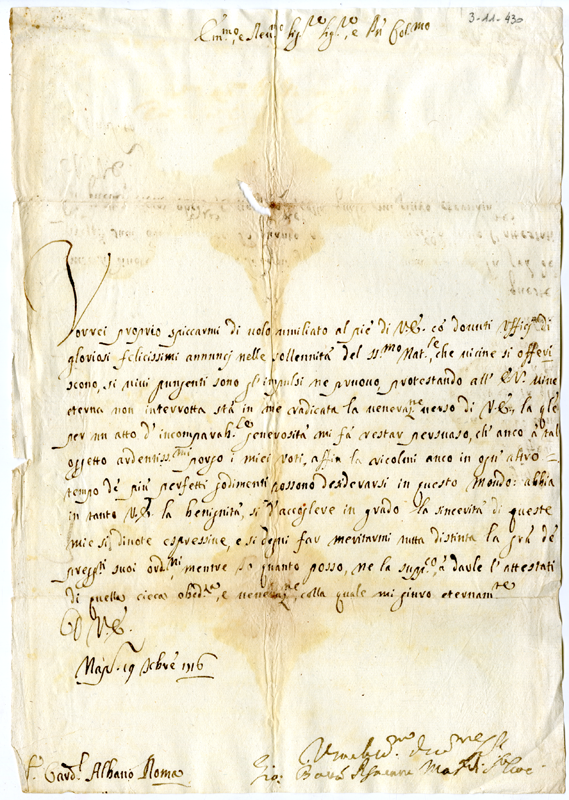 3-11-430
Em.mo, e Reu.mo Sig.re Sig.re, e Pn Col.mo
Vorrei proprio spiccarmi di uolo umiliato al piè di V.E. cò douuti Vffici di
gloriosi felicissimi annunci nelle sollennità del SS.mo Nat.le, che uicine si offeri
scono, si uiui pungenti sono gl'impulsi ne pruouo, protestando all' E.V.
eterna non interrotta stà in me radicata la ueneraz.ne uerso di V.E., la qle
per un atto d'incomparab.le generosità mi fà restar persuaso, ch' anco à tal
oggetto ardentiss.mi porgo i miei uoti, affin la ricolmi anco in ogn' altro
tempo de più perfetti godimenti possono desiderarsi in questo Mondo: abbia
in tanto V.E. la benignità, si d'accogliere in grado la sincerità di queste
mie si diuote espressiue, e si degni far meritarmi tutta distinta la gra de
preggti suoi ord.ni, mentre so quanto posso, ne la supp.co, à darle l'attestati
di quella cieca obed.za, e ueneraz.ne, colla quale mi giuro eternam.te
Di V.E.
19 Xbre 1716
S. Card.l Albano Roma
Gio: